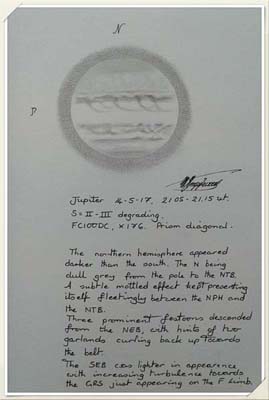 N
P
Jupiter 16-5-17. 2105-21.15 ut.
S = II - III degrading.
FC100DC, x176. Prism diagonal.
The northern hemisphere appeared
darker than the south. The N being
dull grey from the pole to the NTB.
A subtle mottled effect kept presenting
itself fleetingly between the NPH and
the NTB.
Three prominent festoons descended
from the NEB, with hints of two
garlands curling back up towards
the belt.
The SEB was lighter in appearance
with increasing turbulence towards
the GRS just appearing on the F limb.